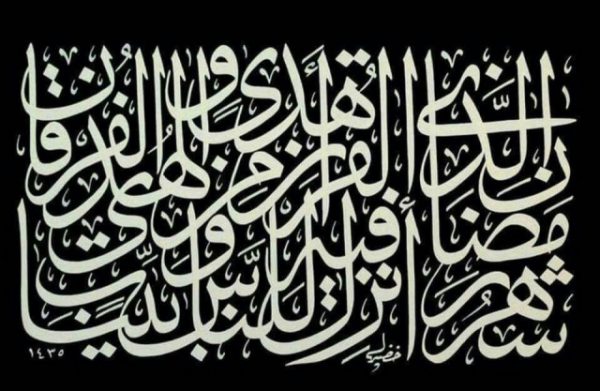 شَهْرُ رَمَضَانَ الَّذِي أُنزِلَ فِيهِ الْقُرْآنُ هُدًى لِلنَّاسِ وَبَيِّنَاتٍ مِنَ الْهُدَى وَالْفُرْقَانِ
١٤٣٥